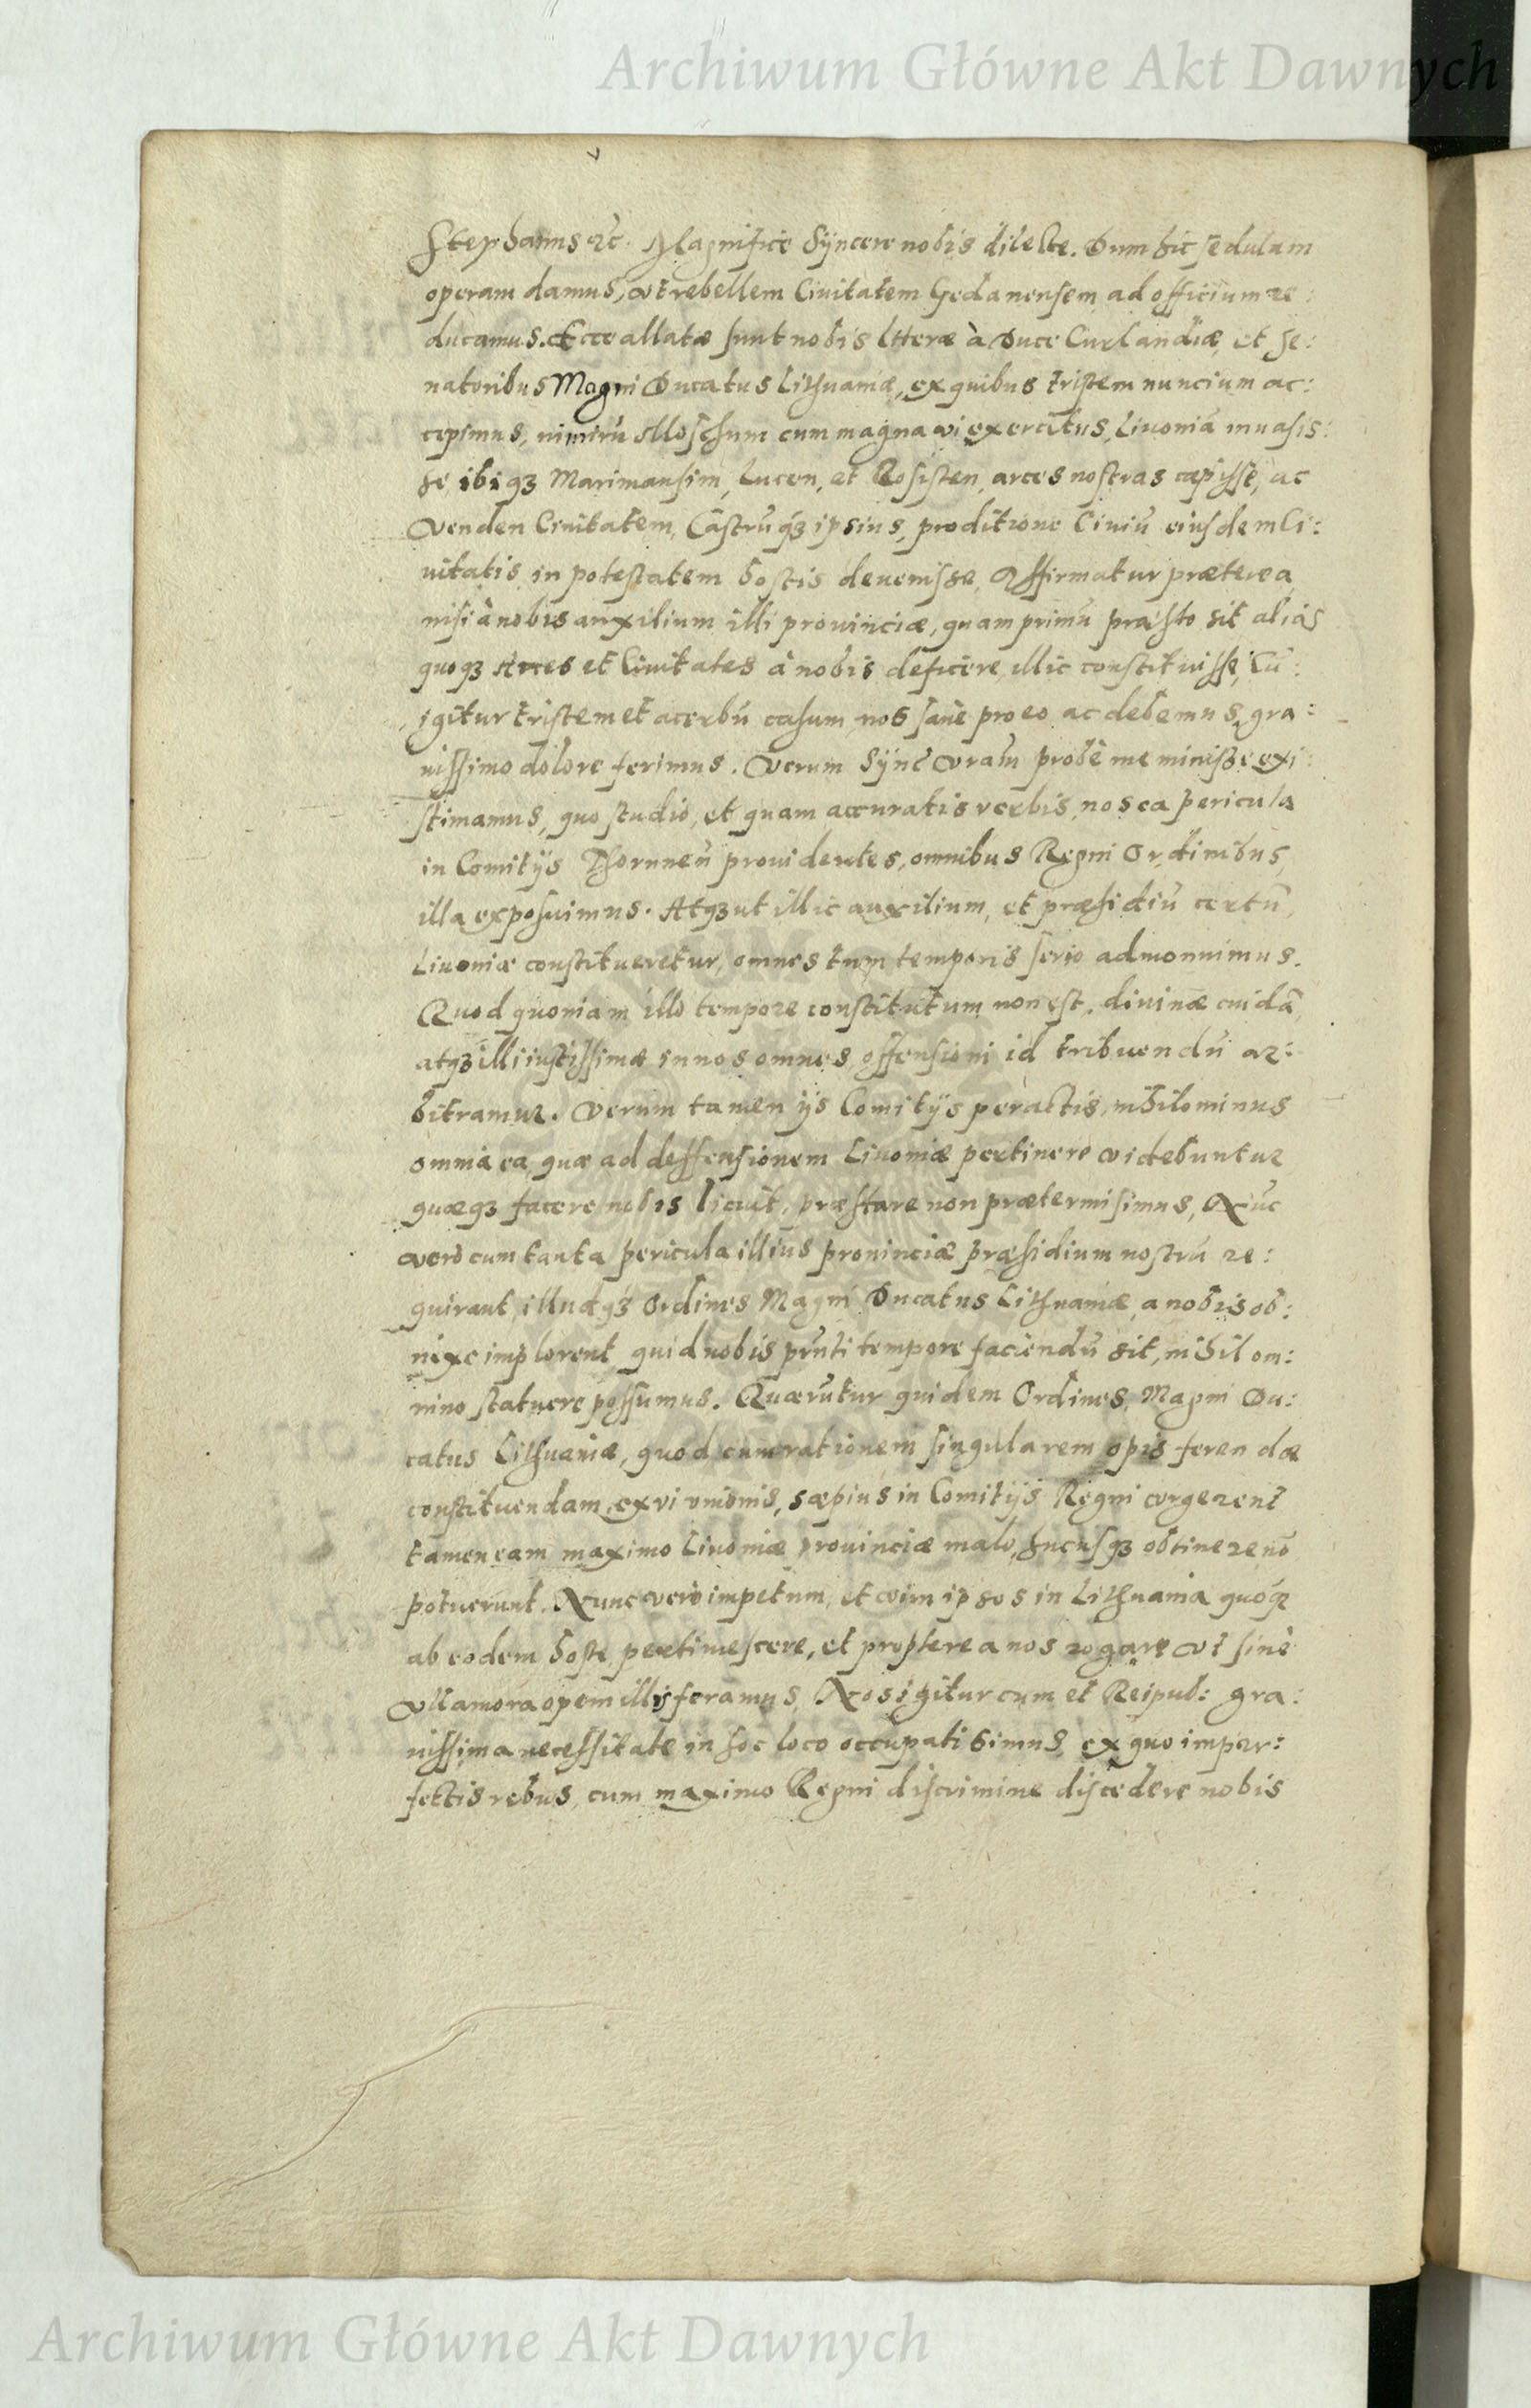 Archiwum Główne Akt Dawnych
Stephanus etc. Magnifice Syncere nobis dilecte. Dum hic sedulam
operam damus, vt rebellem Ciuitatem Gedanensem ad officium re:
ducamus. Ecce allatæ sunt nobis lṙæ à Duce Curlandiæ, et Se:
natoribus Magni Ducatus Lithuaniæ, ex quibus tristem nuncium ac:
cepimus, nimirũ Moschum cum magna vi exercitus, Liuoniã inuasis:
se ibiqꝫ Marimansim, Lucen, et Rosisten, arces nostras cæpisse, ac
Venden Ciuitatem, Castrũqꝫ ipsius, proditione Ciuiũ eiusdem Ci:
uitatis, in potestatem hostis deuenisse, Affirmatur præterea
nisi à nobis auxilium illi prouinciæ, quam primũ præsto sit alias
quoqꝫ Arces et Ciuitates à nobis deficere, illic constituisse, Cũ:
igitur tristem et acerbũ casum, nos sanè pro eo ac debemus, gra:
uissimo dolore ferimus. Verum Sync̃ Vram̃ probè meminisse exi:
stimamus, quo studio, et quam accuratis verbis, nos ea pericula
in Comitijs Thorunen̄ prouidentes, omnibus Regni Ordinibus,
illa exposuimus. Atqꝫ ut illic auxilium, et præsidiũ certũ,
Liuoniæ constitueretur, omnes tum temporis serio admonuimus.
Quod quoniam illo tempore constitutum non est, diuinæ cuidã,
atqꝫ illi iustissimæ in nos omnes offensioni id tribuendũ ar:
bitramur. Verum tamen ijs Comitijs peractis, nihilominus
omnia ea, quæ ad deffensionem Liuoniæ pertinere videbuntur
quæqꝫ facere nobis licuit, præstare non prætermisimus, Nũc
verò cum tanta pericula illius prouinciæ præsidium nostrũ re:
quirant, illudqꝫ Ordines Magni Ducatus Lithuaniæ, a nobis ob:
nixe implorent, quid nobis prñti tempore faciendũ sit, nihil om:
nino statuere possumus. Quærũtur quidem Ordines Magni Du:
catus Lithuaniæ, quod cum rationem singularem opis ferendæ
constituendam, ex vi vnionis, sæpius in Comitijs Regni vrgerent
tamen eam maximo Liuoniæ prouinciæ malo, hucusqꝫ obtinere nõ
potuerunt. Nunc verò impetum, et vim ipsos in Lithuania quoqꝫ
ab eodem hoste pertimescere, et propterea nos rogare vt sinè
Vlla mora opem illis feramus, Nos igitur cum et Reipub: gra:
uissima necessitate in hoc loco occupati simus, ex quo imper:
fectis rebus, cum maximo Regni discrimine discedere nobis
Archiwum Główne Akt Dawnych